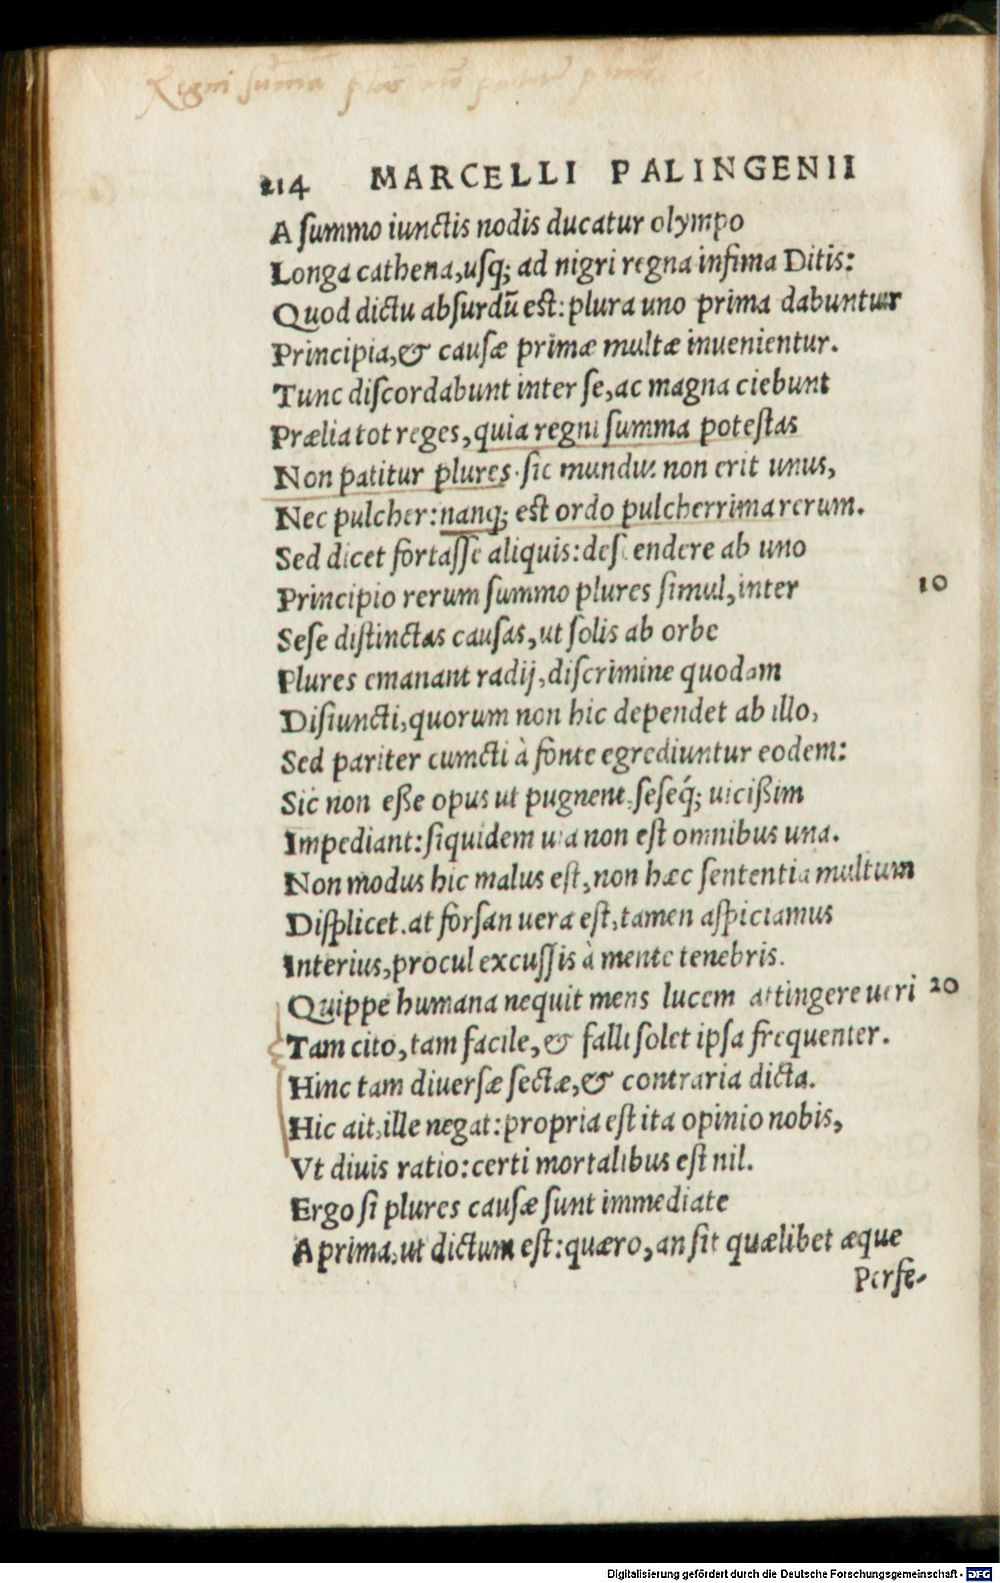 Regni sum̄a
214 MARCELLI PALINGENII
A ſummo iunctis nodis ducatur olympo
Longa cathena, uſq; ad nigri regna infima Ditis:
Quod dictu abſurdū eſt: plura uno prima dabuntur
Principia, & cauſæ primæ multæ inuenientur.
Tunc diſcordabunt inter ſe, ac magna ciebunt
Prælia tot reges, quia regni ſumma poteſtas
Non patitur plures. ſic mundus non erit unus,
Nec pulcher: nanq; eſt ordo pulcherrima rerum.
Sed dicet fortaſſe aliquis: deſcendere ab uno
Principio rerum ſummo plures ſimul, inter 10
Seſe diſtinctas cauſas, ut ſolis ab orbe
Plures emanant radij, diſcrimine quodam
Diſiuncti, quorum non hic dependet ab illo,
Sed pariter cumcti à fonte egrediuntur eodem:
Sic non eße opus ut pugnent, ſeſeq́; uicißim
Impediant: ſiquidem uia non eſt omnibus una.
Non modus hic malus eſt, non hæc ſententia multum
Diſplicet. at forſan uera eſt, tamen aſpiciamus
Interius, procul excuſſis à mente tenebris.
Quippe humana nequit mens lucem attingere ueri 20
Tam cito, tam facile, & falli ſolet ipſa frequenter.
Hinc tam diuerſæ ſectæ, & contraria dicta.
Hic ait, ille negat: propria eſt ita opinio nobis,
Vt diuis ratio: certi mortalibus eſt nil.
Ergo ſi plures cauſæ ſunt immediate
A prima, ut dictum eſt: quæro, an ſit quælibet æque
Perfe-
Digitalisierung gefördert durch die Deutsche Forschungsgemeinschaft - DFG